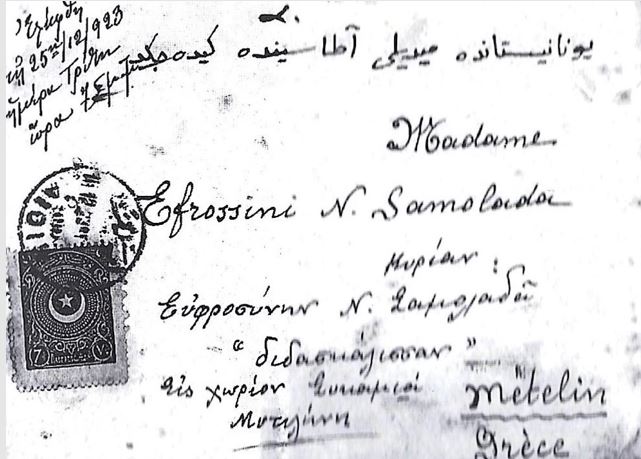 Ἐλήφθη
τῇ 25ῃ/12/923
ἡμέρα Τρίτη
ὥρα 7
یونانیستانده میدیللی آطه سینده کیده جکدر
Madame
Efrossini N. Samolada
Κυρίαν :
Εὐφροσύνην Ν. Σαμολαδᾶ
“διδασκάλισσαν”
Εἰς χωρίον Συκαμιά
Μυτιλήνη
Mételin
Grèce
7